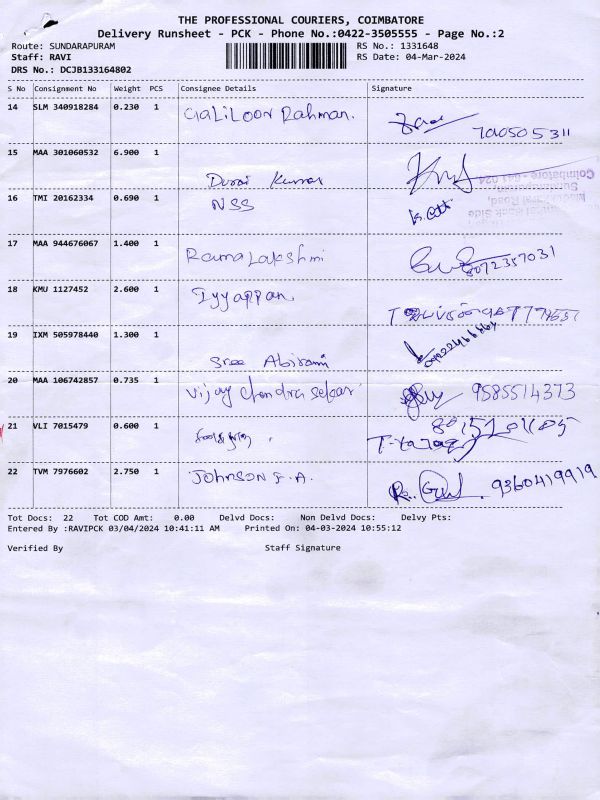 THE PROFESSIONAL COURIERS, COIMBATORE
Delivery Runsheet - PCK - Phone No.:0422-3505555 - Page No.:2
Route: SUNDARAPURAM RS No.: 1331648
Staff: RAVI RS Date: 04-Mar-2024
DRS No.: DCJB133164802
S No Consignment No Weight PCS Consignee Details Signature
14 SLM 340918284 0.230 1 GaliLoor Rahman.
15 MAA 301060532 6.900 1 Durai Kumar
16 TMI 20162334 0.690 1 NSS
17 MAA 944676067 1.400 1 Ramalakshmi 8072357031
18 KMU 1127452 2.600 1 Iyyappan.
19 IXM 505978440 1.300 1 Sree Abirami
20 MAA 106742857 0.735 1 Vijay Chendra Sekar 9585514373
21 VLI 7015479 0.600 1
22 TVM 7976602 2.750 1 Johnson F.A. 9360419919
Tot Docs: 22 Tot COD Amt: 0.00 Delvd Docs: Non Delvd Docs: Delvy Pts:
Entered By :RAVIPCK 03/04/2024 10:41:11 AM Printed On: 04-03-2024 10:55:12
Verified By Staff Signature